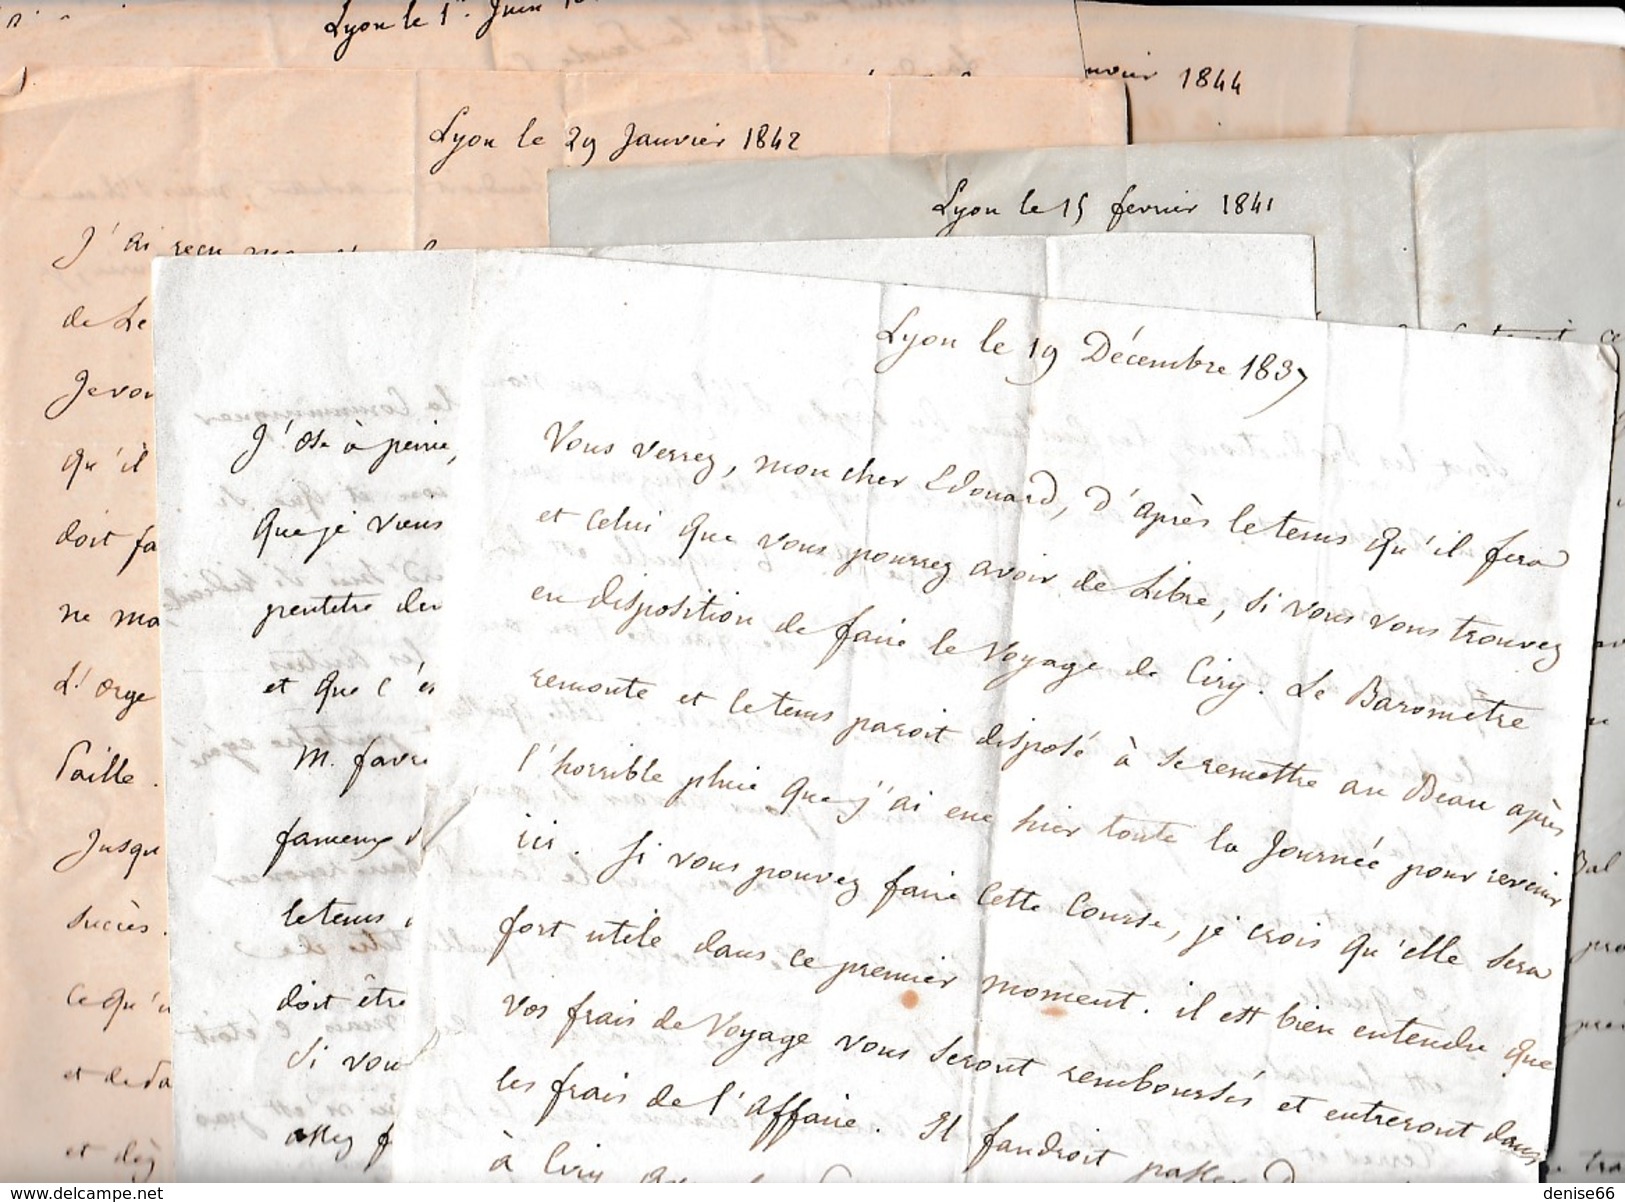 Lyon le 1er Juin
1844
Lyon le 29 Janvier 1842
Lyon le 15 fevrier 1841
J'ai reçu
de Le
Je vou
qu'il
doit fa
ne ma
L'orge
Paille.
Jusqu
succès.
Ce qu'
et de
et
J'ose à peine,
que je viens
peutetre
et que c'
M. favre
fameux
le tems
doit être
Si vou
assez f
Lyon le 19 Décembre 1837
Vous verrez, mon cher Edouard, d'après le tems qu'il fera
et celui que vous pourrez avoir de Libre, si vous vous trouvez
en disposition de faire le Voyage de Ciry. Le Barometre
remonte et le tems paroit disposé à se remettre au Beau après
l'horrible pluie que j'ai eue hier toute la Journée pour revenir
ici. Si vous pouvez faire cette Course, je crois qu'elle sera
fort utile dans ce premier moment. il est bien entendu que
vos frais de Voyage vous seront remboursés et entreront dans
les frais de l'affaire. Il faudroit passer
à Ciry
Bal
pro
denise66